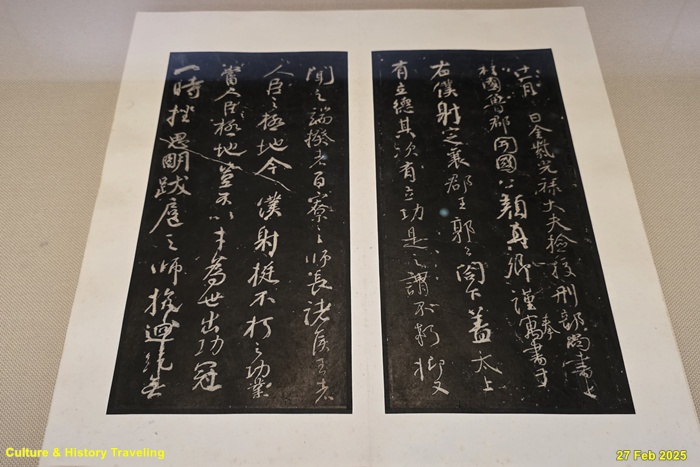 十一月 日金紫光祿大夫檢校刑部尚書上
柱國魯郡開國公顏真卿謹奉寓書于
右僕射定襄郡王郭公閣下蓋太上
有立德其次有立功是之謂不朽抑又
聞之端揆者百寮之師長諸侯王者
人臣之極地今僕射挺不朽之功業
當人臣極地豈不以才為世出功冠
一時挫思明跋扈之師抗迴紇無
Culture & History Traveling
27 Feb 2025